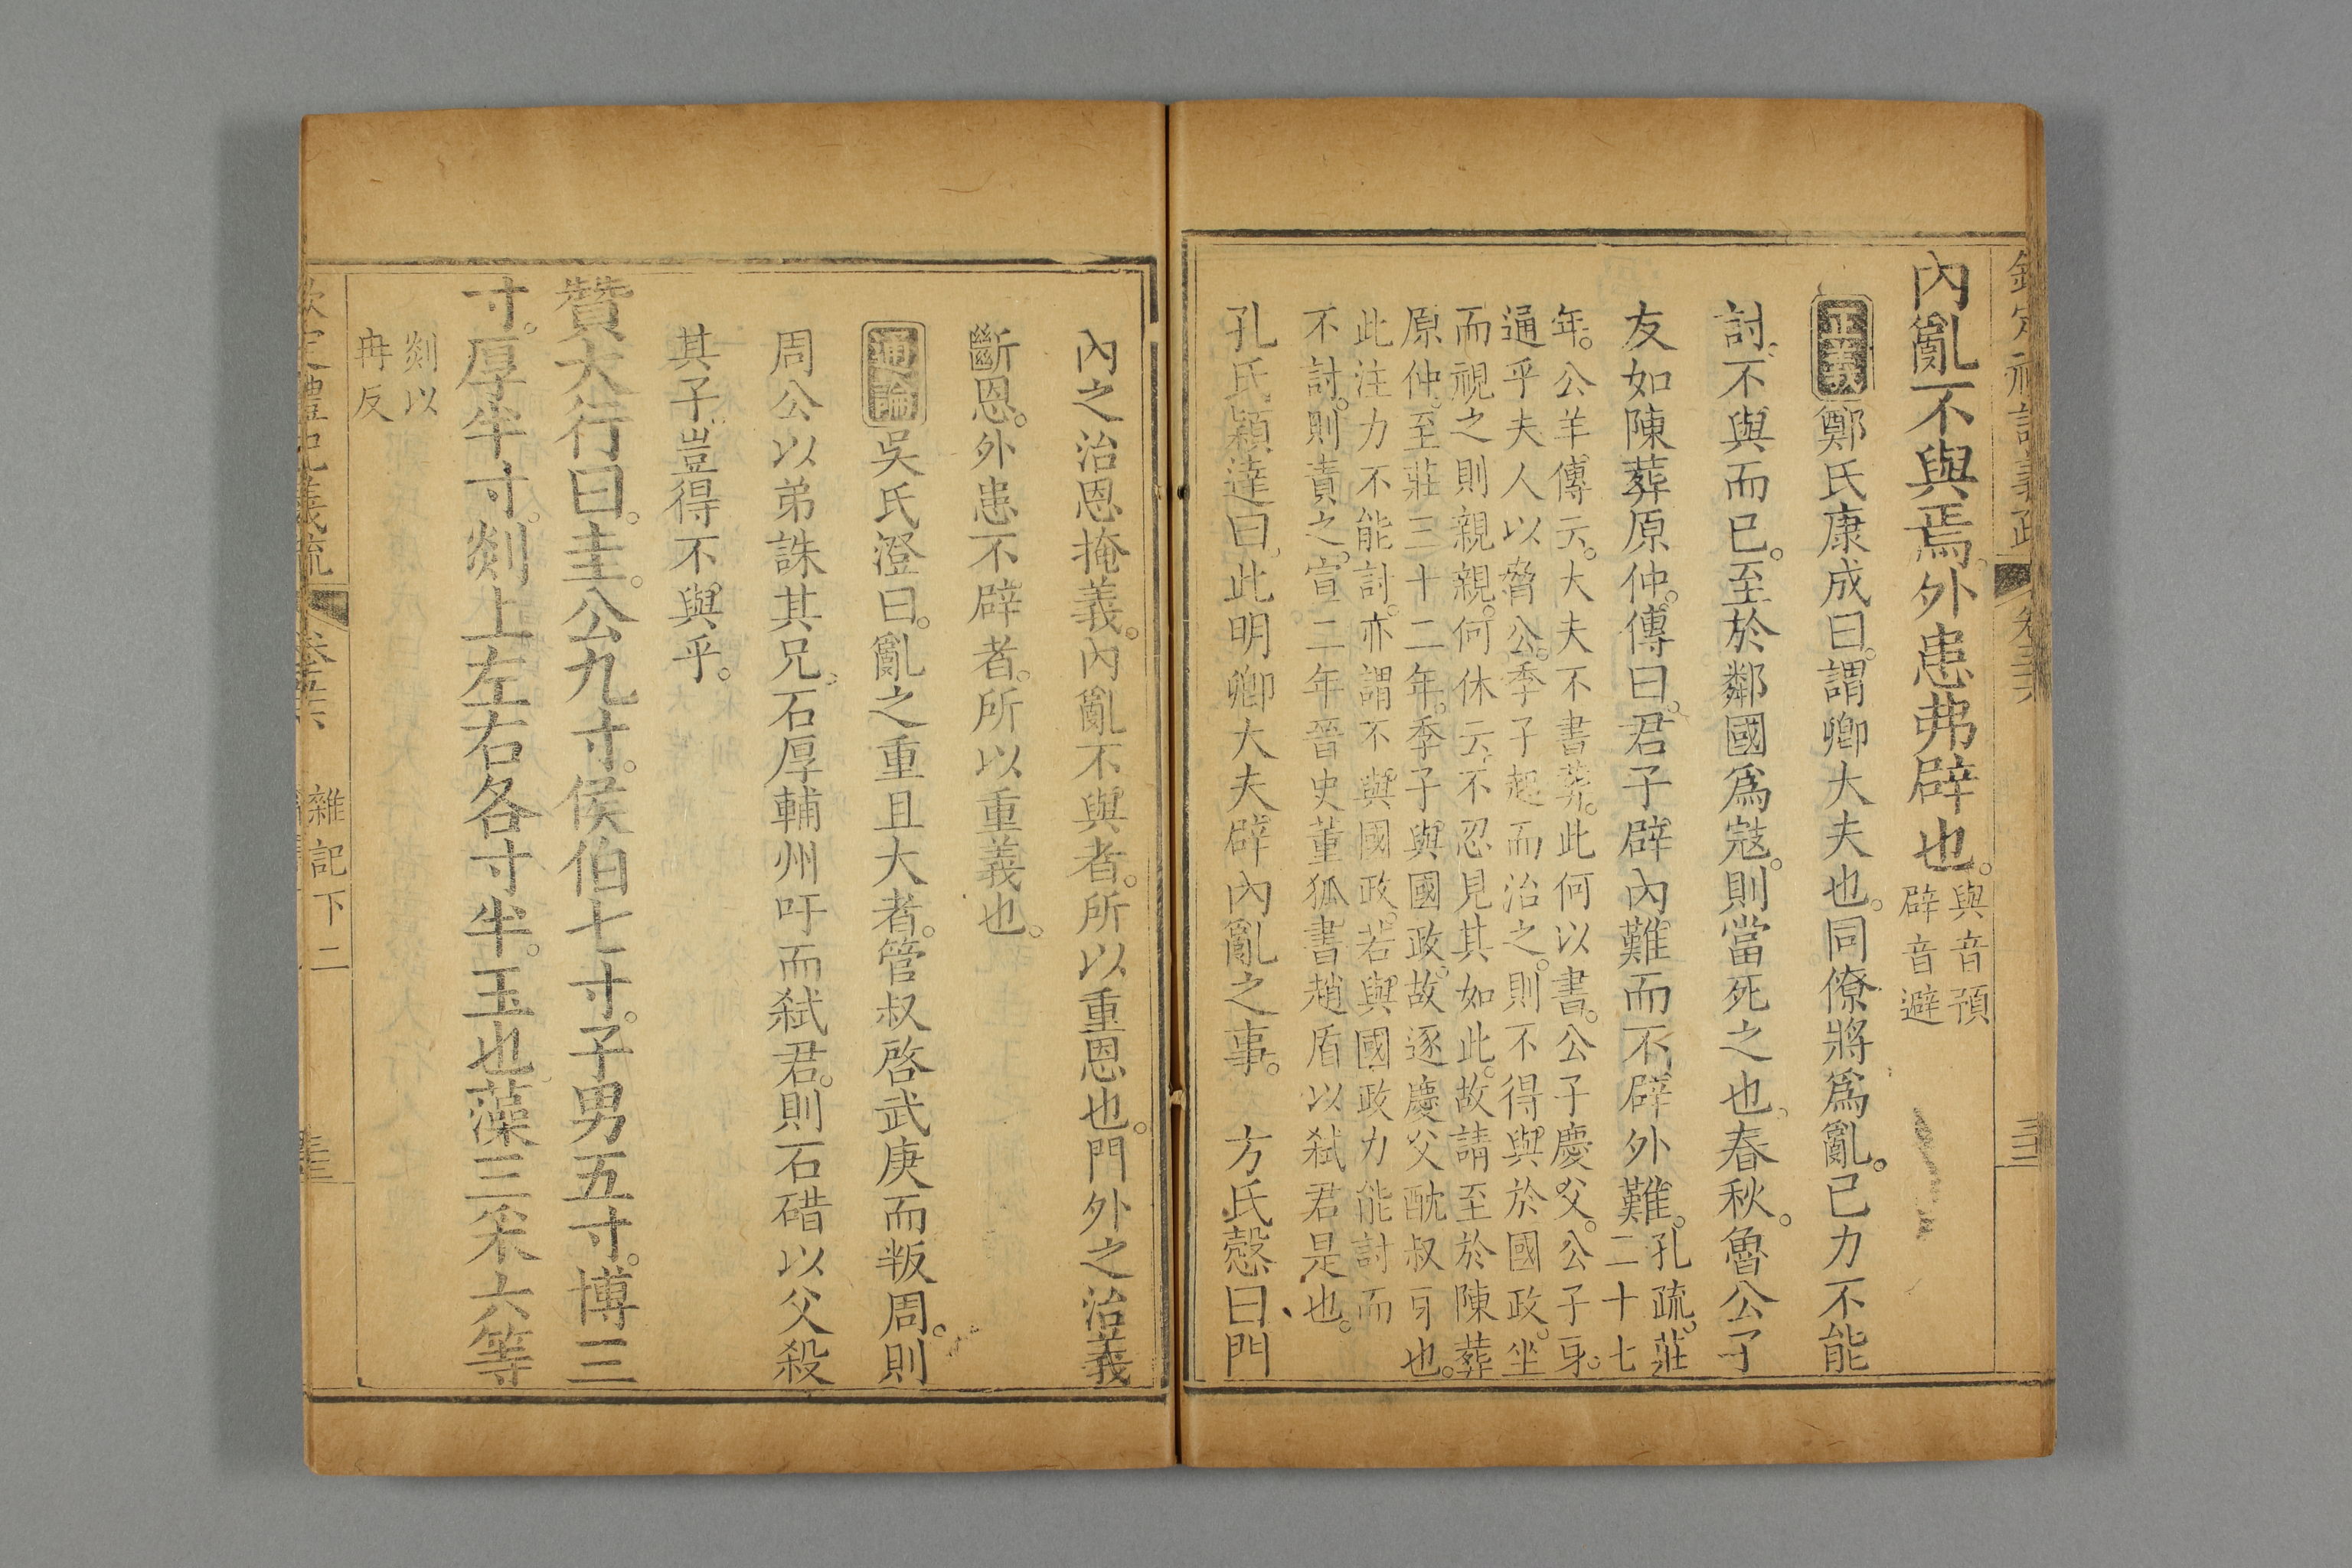 內亂不與焉外患弗辟也。與音預
辟音避
正義鄭氏康成曰。謂卿大夫也。同僚將爲亂。已力不能
討、不與而已。至於鄰國爲寇。則當死之也、春秋。魯公子
友如陳葬原仲。傳曰。君子辟內難而不辟外難。孔疏。莊
二十七
年。公羊傳云。大夫不書葬。此何以書。公子慶父。公子牙。
通乎夫人以脅公。季子起而治之。則不得與於國政。坐
而視之則親親。何休云、不忍見其如此。故請至於陳葬
原仲。至莊三十二年。季子與國政。故逐慶父酖叔牙也。
此注力不能討。亦謂不與國政。若與國政力能討而
不討。則責之。宣二年晉史董狐書趙盾以弑君是也。
孔氏穎達曰、此明卿大夫辟內亂之事。 方氏慤曰門
內之治恩掩義。內亂不與者。所以重恩也。門外之治義
斷恩。外患不辟者。所以重義也。
通論吳氏澄曰。亂之重且大者。管叔啓武庚而叛周。則
周公以弟誅其兄。石厚輔州吁而弑君。則石碏以父殺
其子、豈得不與乎。
贊大行曰。圭。公九寸。侯伯七寸。子男五寸。博三
寸。厚半寸。剡上左右各寸半。玉也、藻三采六等
剡以
冉反
雜記下二